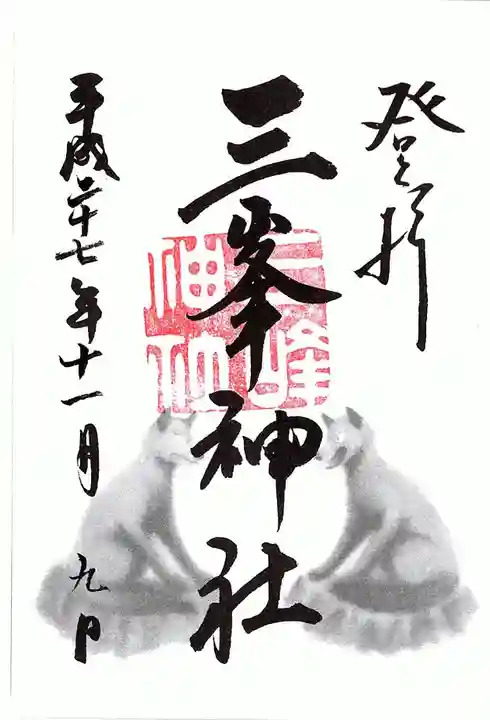 登拝
三峯神社
三峰神社
平成二十七年十一月 九日